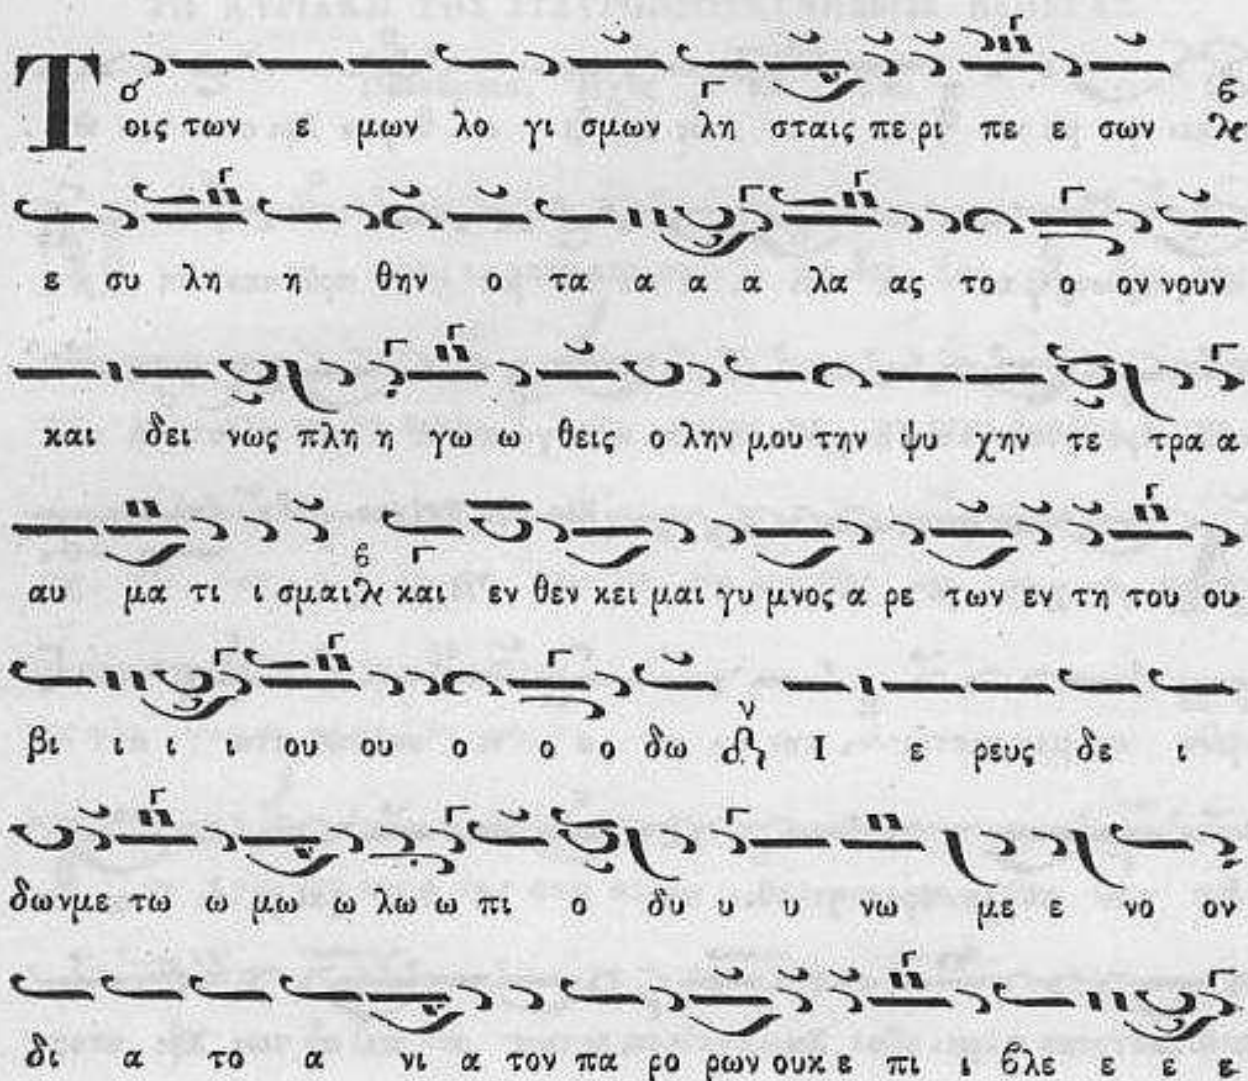 Τοις των ε μων λο γι σμων λη σταις πε ρι πε ε σων
ε συ λη η θην ο τα α α α λα ας το ο ον νουν
και δει νως πλη η γω ω θεις ο λην μου την ψυ χην τε τρα α
αυ μα τι ι σμαι και εν θεν κει μαι γυ μνος α ρε των εν τη του ου
βι ι ι ι ου ου ο ο ο δω Ι ε ρευς δε ι
δων με τω ω μω ω λω ω πι ο δυ υ υ νω με ε νο ον
δι α το α νι α τον πα ρο ρων ουκ ε πι ι βλε ε ε ε